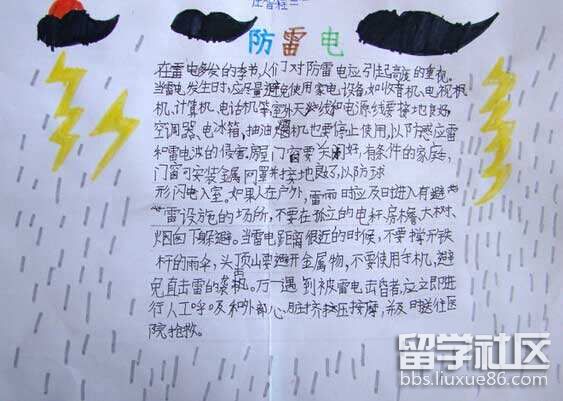 防雷电
在雷电多发的季节,人们对防雷电应引起高度的重视。
当雷电发生时,应尽量避免使用家电设备,如收音机、电视机
机、计算机、电话机等室外天线和电源线要接地良好,
空调器、电冰箱、抽油烟机也要停止使用,以防感应雷
和雷电波的侵害。房屋门窗要关闭好,有条件的家庭,
门窗可安装金属网罩并接地良好,以防球
形闪电入室。如果人在户外,雷雨时应及时进入有避
雷设施的场所,不要在孤立的电杆、房檐、大树、
烟囱下躲避。当雷电距离很近的时候,不要撑开铁
杆的雨伞,头顶山要避开金属物,不要使用手机,避
免直击雷的袭击。万一遇到被雷电击昏者,应立即进
行人工呼吸和外部心脏挤压按摩,并及时送往医
院抢救。
留学社区
bbs.liuxue86.com